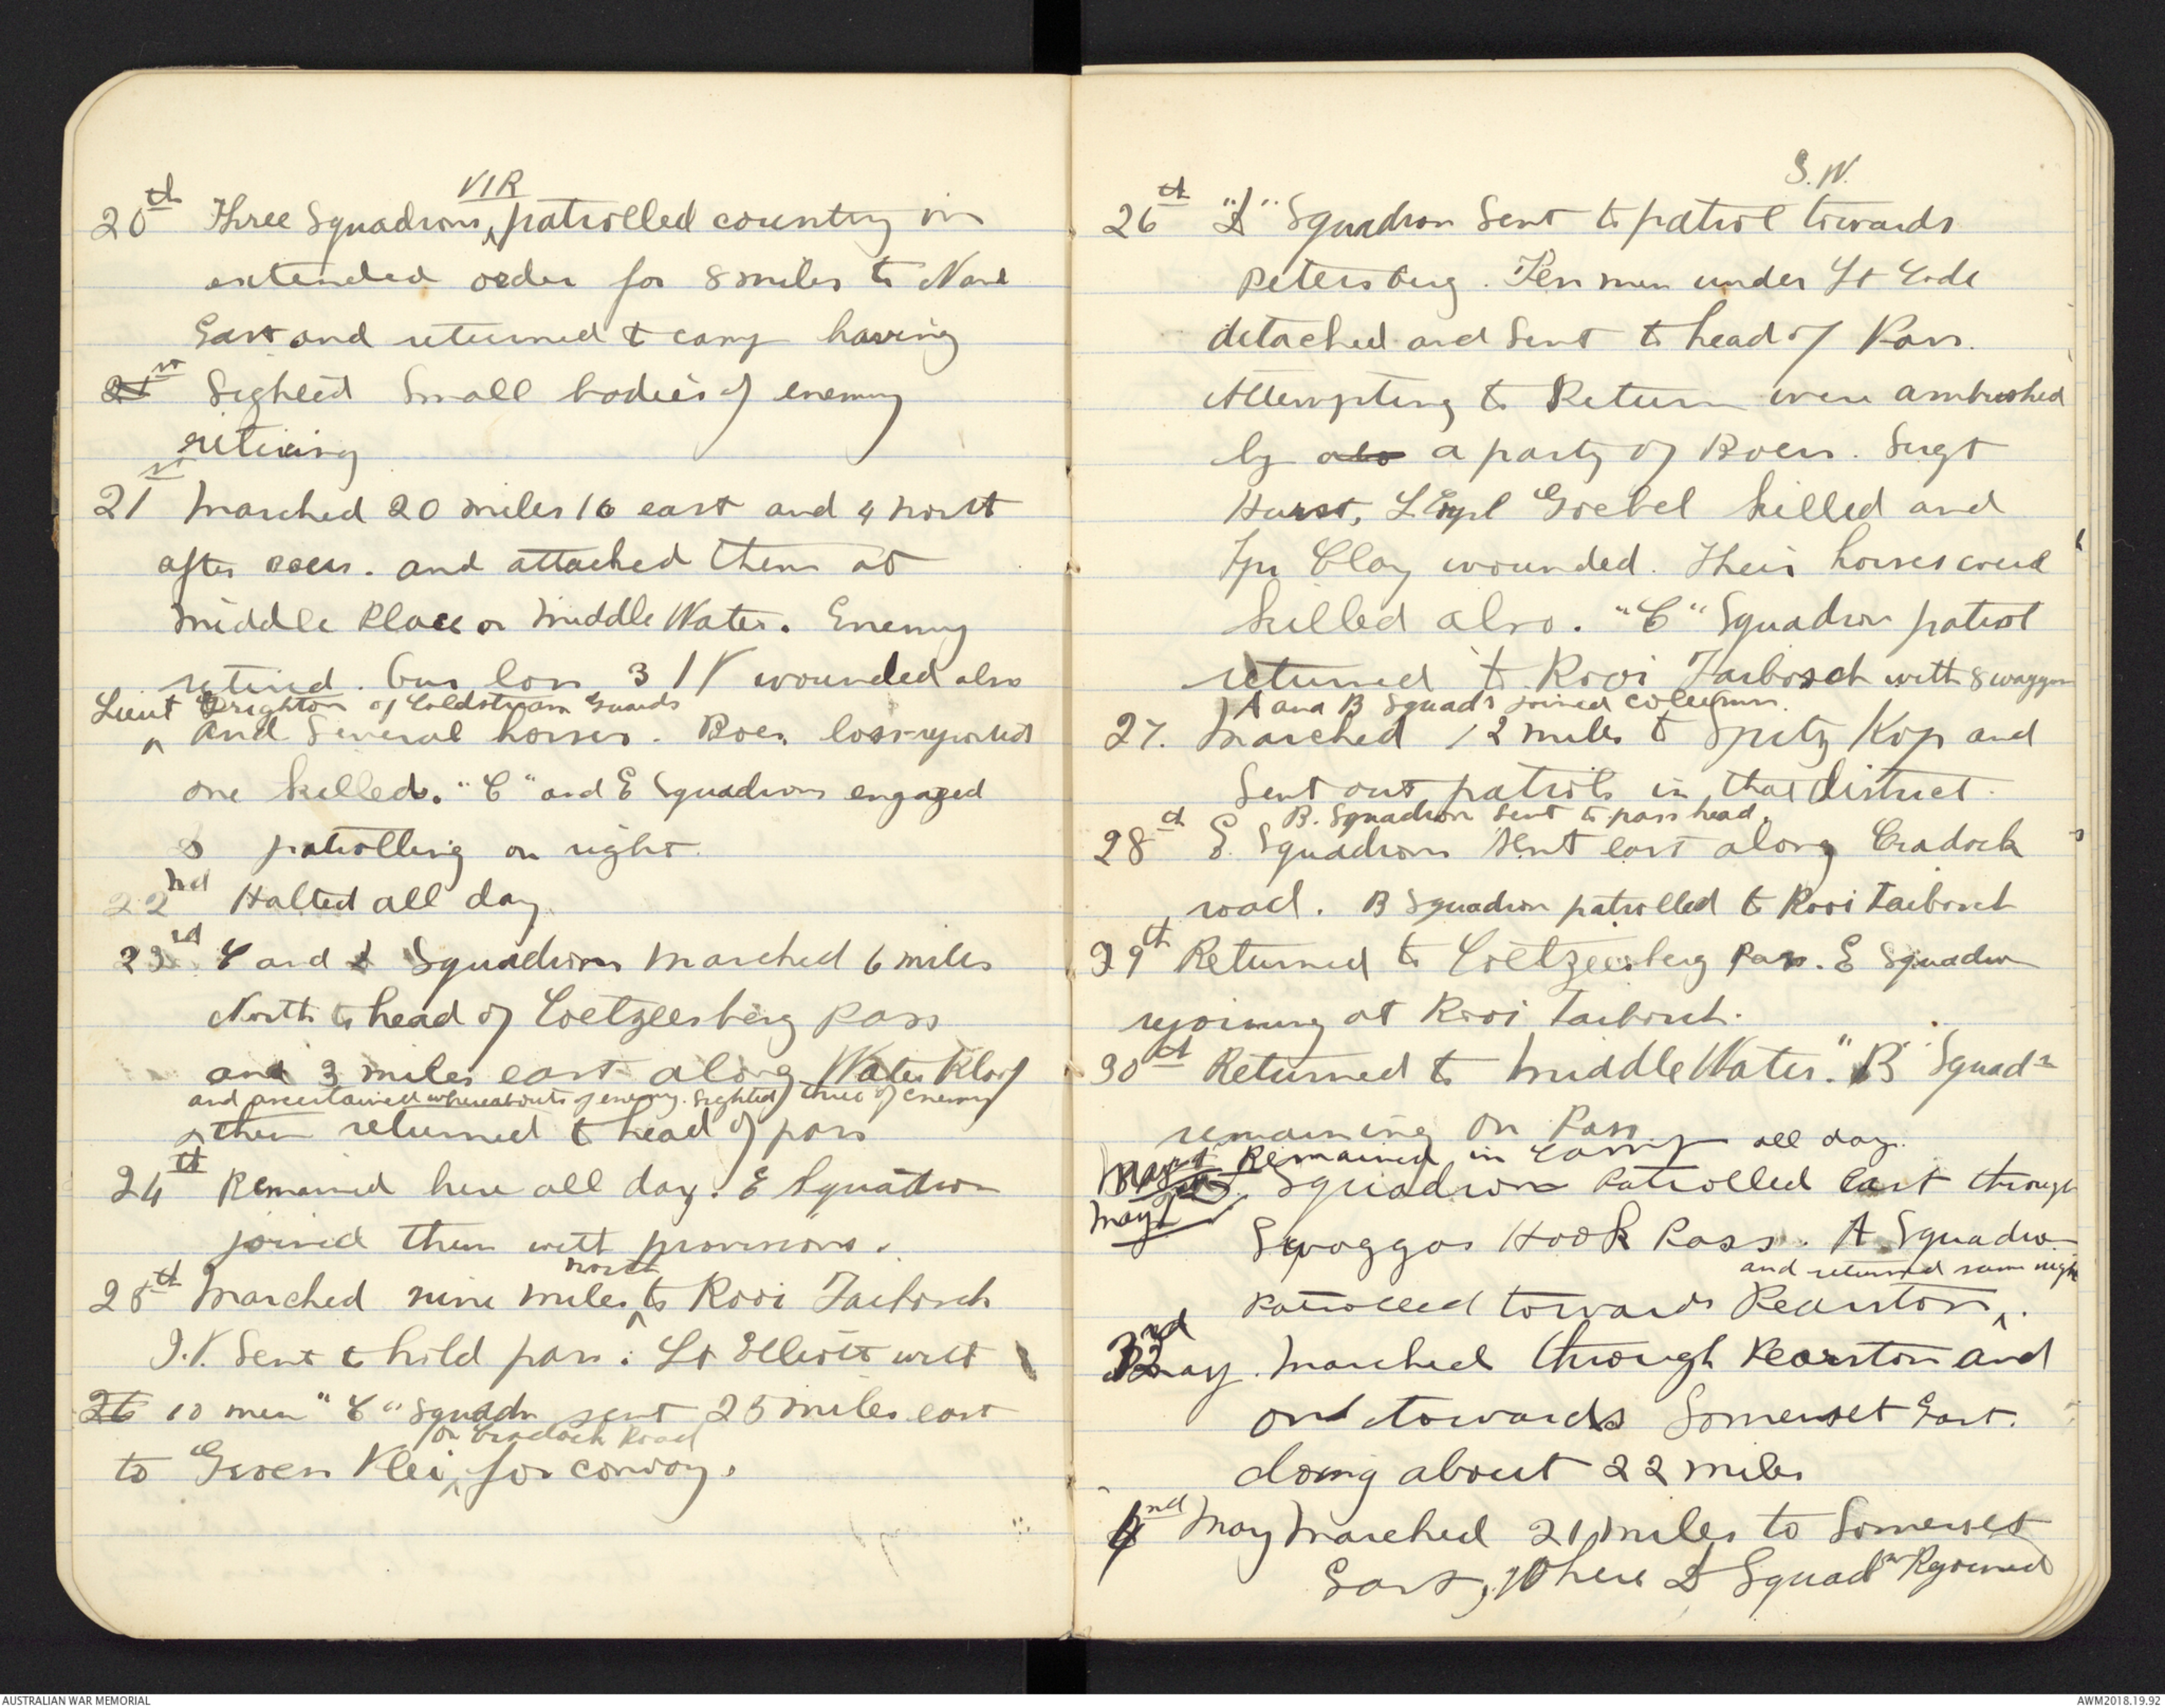 VIR
20th Three Squadrons patrolled country in
extended order for 8 miles to North
East and returned to camp having
21st Sighted Small bodies of enemy
retiring
21st Marched 20 miles 16 east and 4 north
after Boers. and attacked them at
Middle Place or Middle Water. Enemy
retired. Our loss 3 I V wounded also
Lieut Brighton of Coldstream Guards
and Several horses. Boer loss reported
one killed. "C" and E Squadrons engaged
patrolling on right.
22nd Halted all day
23rd C and D Squadrons marched 6 miles
North to head of Coetzeesberg Pass
and 3 miles east along Water Kloof
and ascertained whereabouts of enemy. Sighted three of enemy
then returned to head of pass
24th Remained here all day. E Squadron
joined them with provisions.
north
25th Marched nine miles to Rooi Taibosch
I.V. Sent to hold pass. Lt Elliott with
26 10 men "C" Squadn sent 25 miles east
on Cradock Road
to Groen Vlei for convoy.
S.W.
26th "D" Squadron Sent to patrol towards
Petersburg. Ten men under Lt
detached and Sent to head of Pass.
Attempting to Return were ambushed
by a party of Boers. Sergt
Hurst, L Corpl Goebel killed and
Tpr Clay wounded. Their horses were
killed also. "C" Squadron patrol
returned to Rooi Taibosch with 8 waggons
A and B Squads joined column.
27. Marched 12 miles to Spitz Kop and
Sent out patrols in that district.
B. Squadron sent to pass head.
28th E. Squadron sent east along Cradock
road. B Squadron patrolled to Rooi Taibosch
29th Returned to Coetzeesberg Pass. E Squadron
rejoining at Rooi Taibosch.
30th Returned to Middle Water. "B" Squadn
remaining on Pass
May 1st Remained in Camp all day.
May 2 Squadron Patrolled East through
Swaggos Hook Pass. A Squadron
and returned same night
Patrolled towards Pearston.
3rd May. Marched through Pearston and
on towards Somerset East.
doing about 22 miles
4nd May Marched 21 miles to Somerset
East, where D Squadn Rejoined
AUSTRALIAN WAR MEMORIAL
AWM2018.19.92